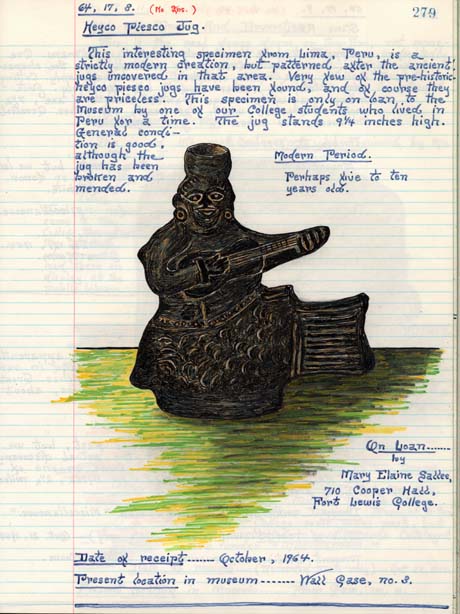 64, 17, 3. (No
279
Heyco Piesco Jug.
This interesting specimen from Lima, Peru, is a
strictly modern creation, but patterned after the ancient
jugs uncovered in that area. Very few of the pre-historic
heyco piesco jugs have been found, and of course they
are priceless. This specimen is only on loan to the
Museum by one of our College students who lived in
Peru for a time. The jug stands 9¼ inches high.
General condi-
tion is good,
although the
jug has been
broken and
mended.
Modern Period.
Perhaps five to ten
years old.
On Loan.......
by
Mary Elaine Sallee,
710 Cooper Hall,
Fort Lewis College.
Date of receipt ....... October, 1964.
Present location in museum ....... Wall Case, no. 3.